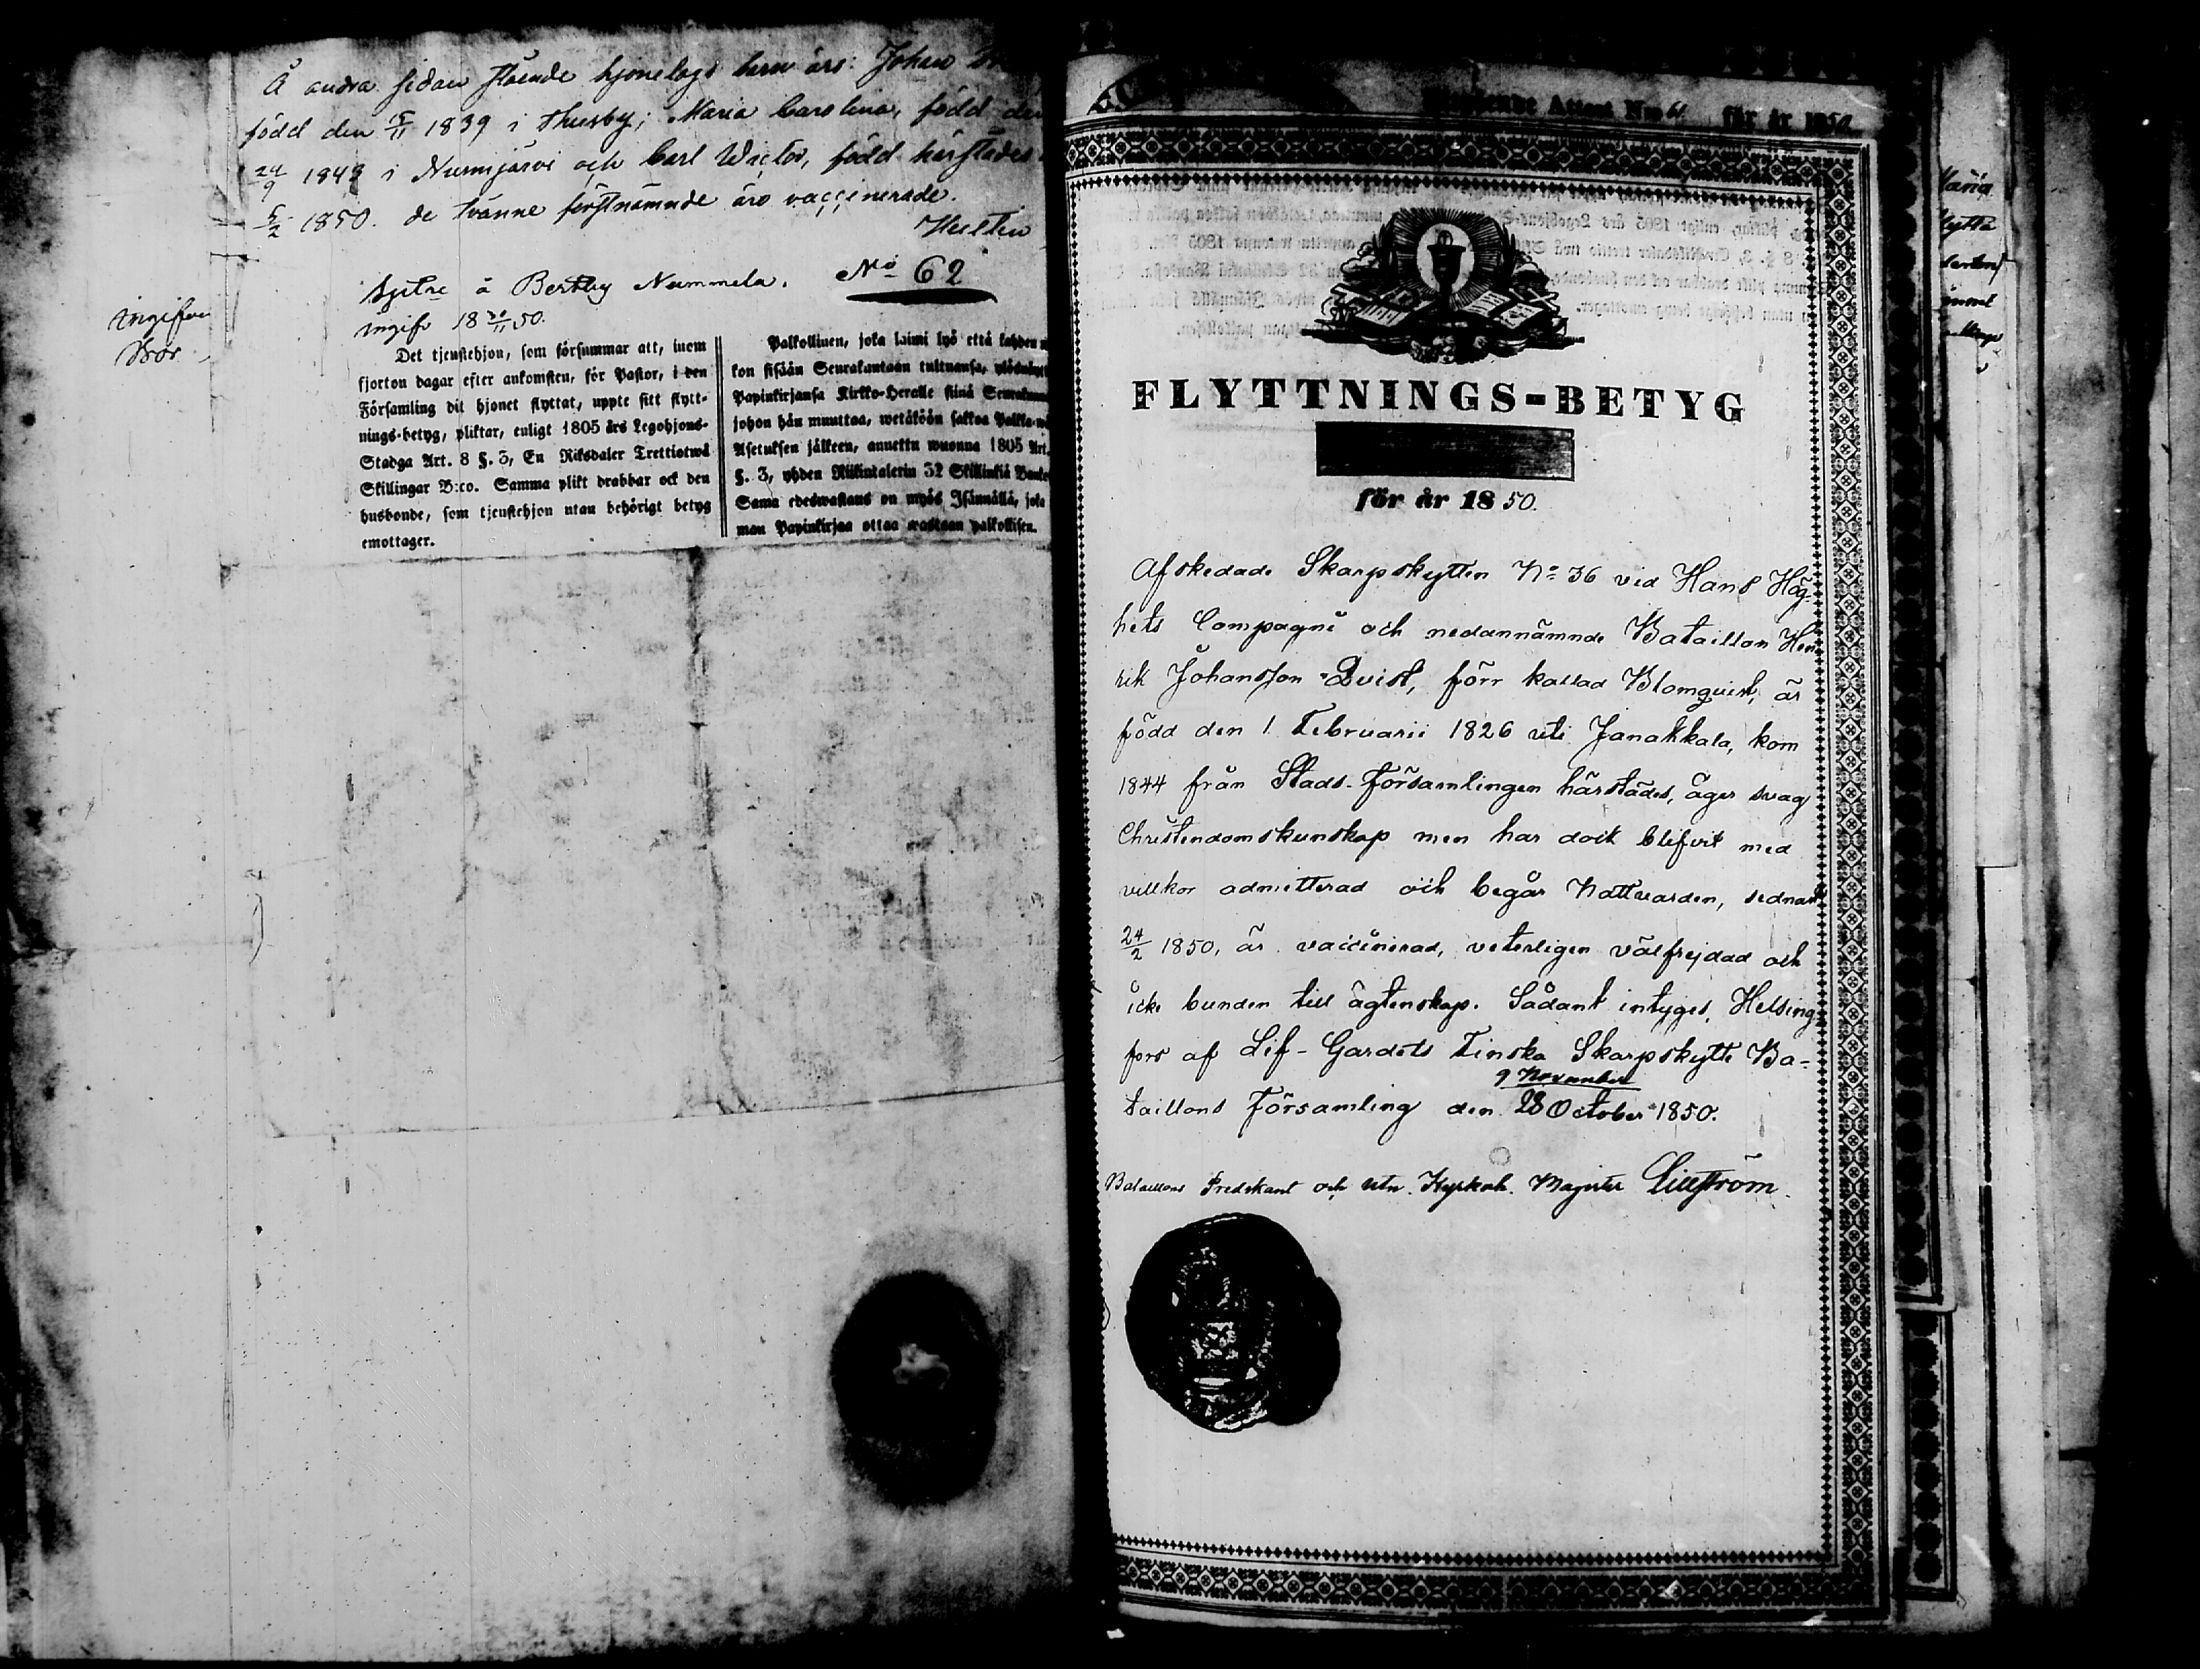 Å andra sidan stående hjonelags barn äro: Johan
född den 15/11 1839 i Thusby; Maria Carolina, född den
24/9 1843 i Nurmijärvi och Carl Wictor, född härstädes
5/2 1850. de tvänne förstnämnde äro vaccinerade.
Hultin
Sytne å Bertby Nummela. No 62
ingifv 18 20/11 50.
ingifven
Det tjenstehjon, som försummar att, inom
fjorton dagar efter ankomsten, för Pastor, i den
Församling dit hjonet flyttat, uppte sitt flytt-
nings-betyg, pliktar, enligt 1805 års Legohjons-
Stadga Art. 8 §. 3, En Riksdaler Trettiotwå
Skillingar B:co. Samma plikt drabbar ock den
husbonde, som tjenstehjon utan behörigt betyg
emottager.
Palkollinen, joka laimi lyö että kahden
kon sisään Seurakuntaan tultuansa, ylösnäytt
Papinkirjansa Kirkko-Herralle siinä Seurakunn
johon hän muuttaa, wetäköön sakkoa Palkka-
Asetuksen jälkeen, annettu wuonna 1805 Art.
§. 3, yhden Riikintalerin 32 Skillinkiä Banko
Sama edeswastaus on myös Isännällä, joka
man Papinkirjaa ottaa wastaan palkollisen.
Attest No 61 för år 1850
FLYTTNINGS-BETYG
för år 1850.
Afskedade Skarpskytten No 36 vid Hans Hög-
hets Compagni och nedannämnde Bataillon Hen
rik Johansson Qvist, förr kallad Blomqvist, är
född den 1 Februarii 1826 uti Janakkala, kom
1844 från Stads-församlingen härstädes, äger svag
Christendomskunskap men har dock blifvit med
villkor admitterad och begår Nattvarden, sednast
24/2 1850, är vaccinerad, veterligen välfrejdad och
icke bunden till ägtenskap. Sådant intyges, Helsing-
fors af Lif-Gardets Finska Skarpskytte Ba-
9 November
taillons Församling den 28 October 1850.
Bataillons Predikant och utn. Kyrkoh. Magister Lillström.